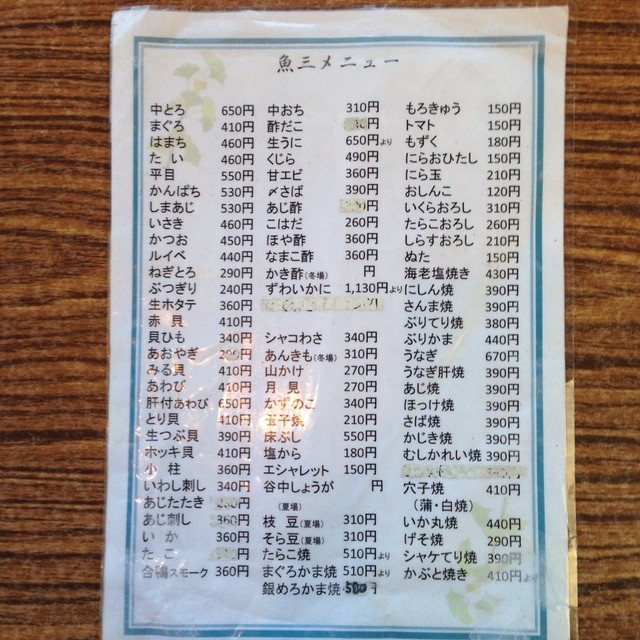 魚三メニュー
中とろ 650円
まぐろ 410円
はまち 460円
たい 460円
平目 550円
かんぱち 530円
しまあじ 530円
いさき 460円
かつお 450円
ルイベ 440円
ねぎとろ 290円
ぶつぎり 240円
生ホタテ 360円
赤貝 410円
貝ひも 340円
あおやぎ 円
みる貝 410円
あわび 410円
肝付あわび 650円
とり貝 410円
生つぶ貝 390円
ホッキ貝 410円
小柱 360円
いわし刺し 340円
あじたたき 円
あじ刺し 360円
いか 360円
たこ 円
合鴨スモーク 360円
中おち 310円
酢だこ 円
生うに 650円より
くじら 490円
甘エビ 360円
〆さば 390円
あじ酢 円
こはだ 260円
ほや酢 360円
なまこ酢 360円
かき酢(冬場) 円
ずわいかに 1,130円より
シャコわさ 340円
あんきも(冬場) 310円
山かけ 270円
月見 270円
かずのこ 340円
玉子焼 210円
床ぶし 550円
塩から 180円
エシャレット 150円
谷中しょうが 円
(夏場)
枝豆(夏場) 310円
そら豆(夏場) 310円
たらこ焼 510円より
まぐろかま焼 510円より
銀めろかま焼 500円
もろきゅう 150円
トマト 150円
もずく 180円
にらおひたし 150円
にら玉 210円
おしんこ 120円
いくらおろし 310円
たらこおろし 260円
しらすおろし 210円
ぬた 150円
海老塩焼き 430円
にしん焼 390円
さんま焼 390円
ぶりてり焼 380円
ぶりかま 440円
うなぎ 670円
うなぎ肝焼 390円
あじ焼 390円
ほっけ焼 390円
さば焼 390円
かじき焼 390円
むしかれい焼 390円
穴子焼 410円
(蒲・白焼)
いか丸焼 440円
げそ焼 290円
シャケてり焼 390円
かぶと焼き 410円より